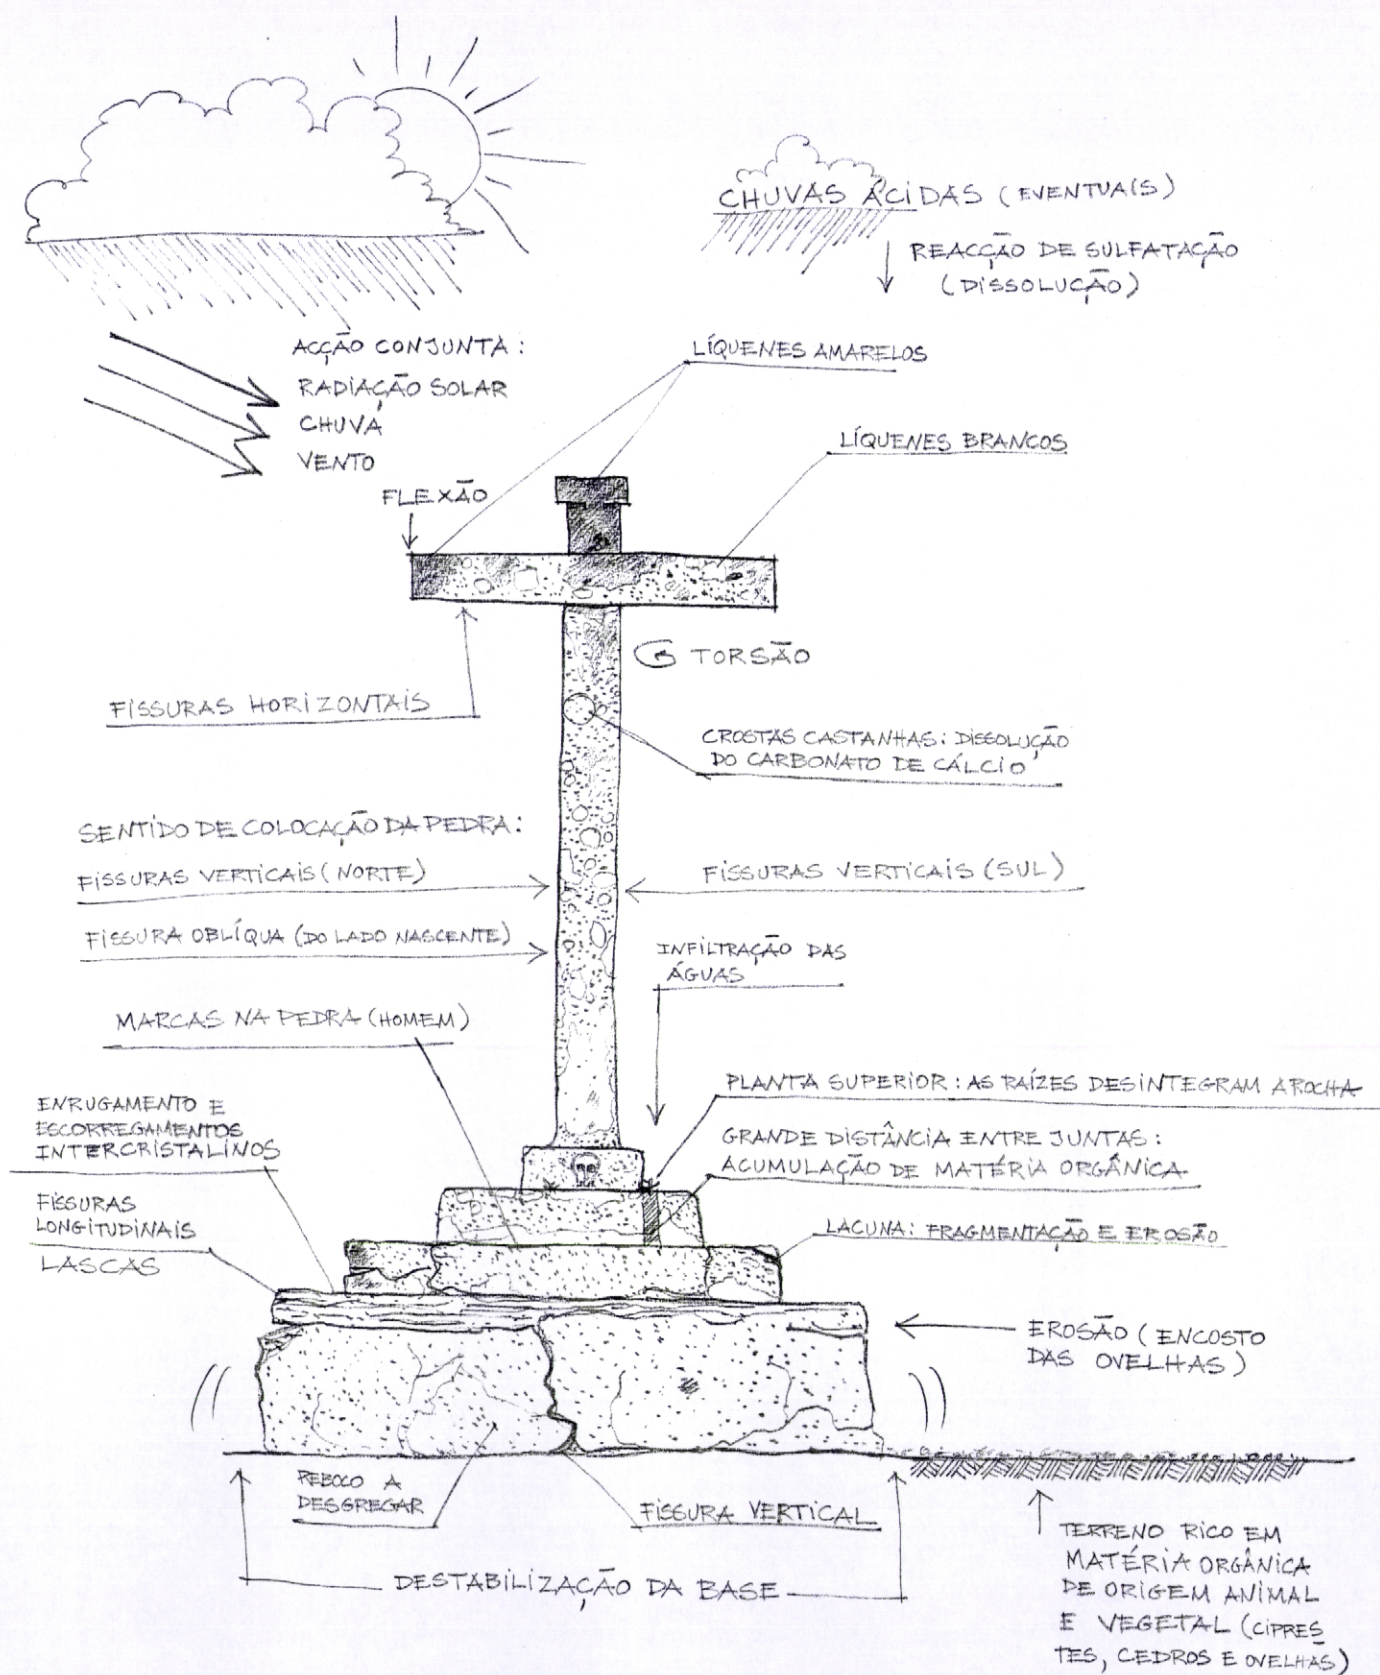 CHUVAS ÁCIDAS (EVENTUAIS)
REACÇÃO DE SULFATAÇÃO
(DISSOLUÇÃO)
ACÇÃO CONJUNTA:
RADIAÇÃO SOLAR
CHUVA
VENTO
LÍQUENES AMARELOS
LÍQUENES BRANCOS
FLEXÃO
TORSÃO
FISSURAS HORIZONTAIS
CROSTAS CASTANHAS: DISSOLUÇÃO
DO CARBONATO DE CÁLCIO
SENTIDO DE COLOCAÇÃO DA PEDRA:
FISSURAS VERTICAIS (NORTE)
FISSURAS VERTICAIS (SUL)
FISSURA OBLÍQUA (DO LADO NASCENTE)
INFILTRAÇÃO DAS
ÁGUAS
MARCAS NA PEDRA (HOMEM)
PLANTA SUPERIOR: AS RAÍZES DESINTEGRAM A ROCHA
ENRUGAMENTO E
ESCORREGAMENTOS
INTERCRISTALINOS
GRANDE DISTÂNCIA ENTRE JUNTAS:
ACUMULAÇÃO DE MATÉRIA ORGÂNICA
FISSURAS
LONGITUDINAIS
LASCAS
LACUNA: FRAGMENTAÇÃO E EROSÃO
EROSÃO (ENCOSTO
DAS OVELHAS)
REBOCO A
DESGREGAR
FISSURA VERTICAL
DESTABILIZAÇÃO DA BASE
TERRENO RICO EM
MATÉRIA ORGÂNICA
DE ORIGEM ANIMAL
E VEGETAL (CIPRES
TES, CEDROS E OVELHAS)